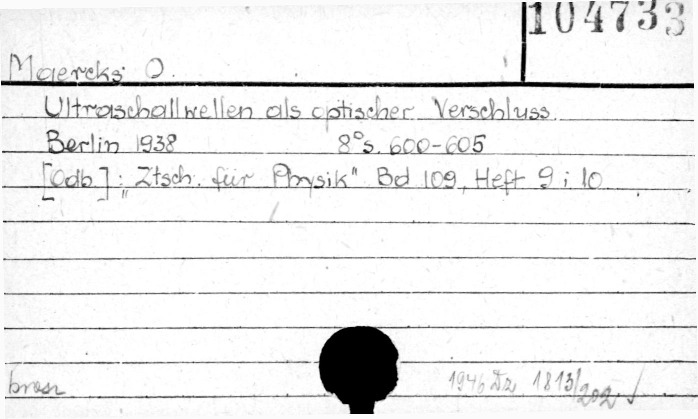 104733
Maercks O.
Ultraschallwellen als optischer Verschluss.
Berlin 1938 8° s. 600-605
[Odb.]: „Ztsch. für Physik" Bd 109, Heft 9 i 10
brosz
1946 Dz 1813/202